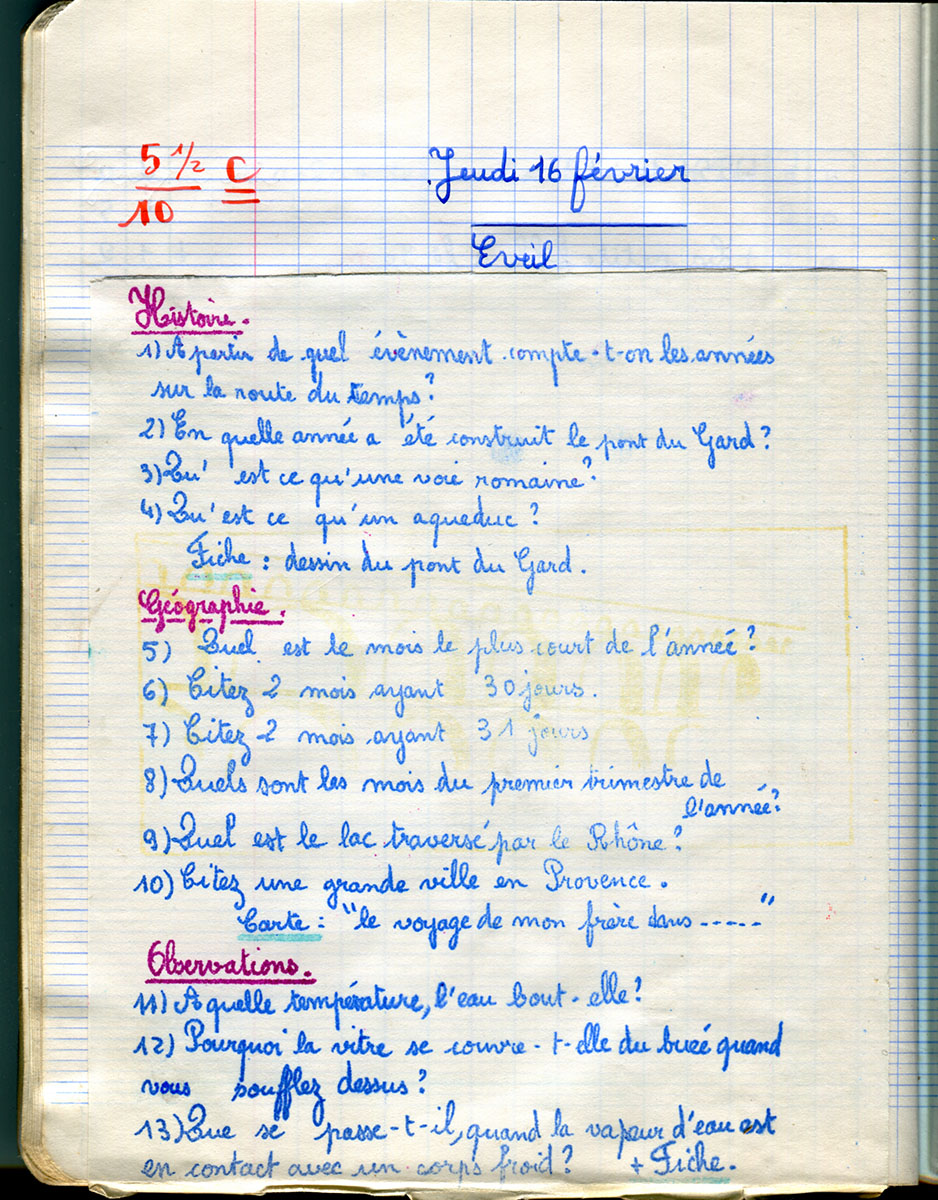 5 1/2 C
10
Jeudi 16 février
Eveil
Histoire.
1) A partir de quel évènement compte-t-on les années
sur la route du temps?
2) En quelle année a été construit le pont du Gard?
3) Qu' est ce qu'une voie romaine?
4) Qu'est ce qu'un aqueduc?
Fiche : dessin du pont du Gard.
Géographie.
5) Quel est le mois le plus court de l'année?
6) Citez 2 mois ayant 30 jours.
7) Citez 2 mois ayant 31 jours
8) Quels sont les mois du premier trimestre de
l'année?
9) Quel est le lac traversé par le Rhône?
10) Citez une grande ville en Provence.
Carte : "le voyage de mon frère dans -----"
Observations.
11) A quelle température, l'eau bout-elle?
12) Pourquoi la vitre se couvre-t-elle du bueé quand
vous soufflez dessus?
13) Que se passe-t-il, quand la vapeur d'eau est
en contact avec un corps froid? + Fiche.